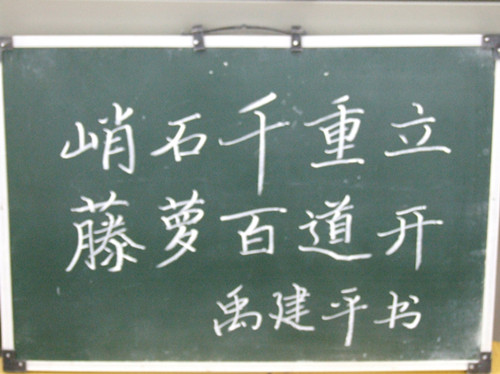 峭石千重立
藤萝百道开
禹建平书